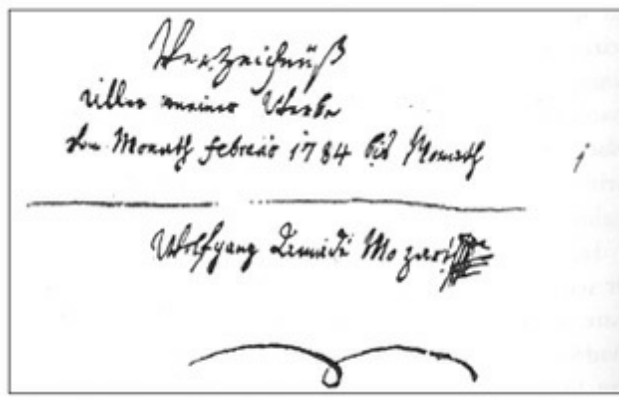 Verzeichnüß
aller meiner Werke
vom Monath febrario 1784 bis Monath 1
Wolfgang Amadé Mozart